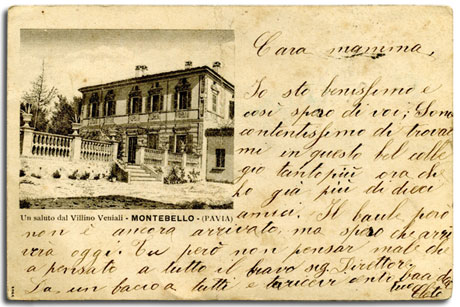 Cara mamma,
Io sto benissimo e
così spero di voi; Sono
contentissimo di trovar
mi in questo bel colle
gio tanto più ora che
ho già più di dieci
amici. Il baule però
non è ancora arrivato, ma spero che arri
verà oggi. Tu però non pensar male che
a pensato a tutto il bravo sig. Direttore.
Da un bacio a tutti e ricevine tanti dal
tuo
Un saluto dal Villino Veniali - MONTEBELLO - (PAVIA)